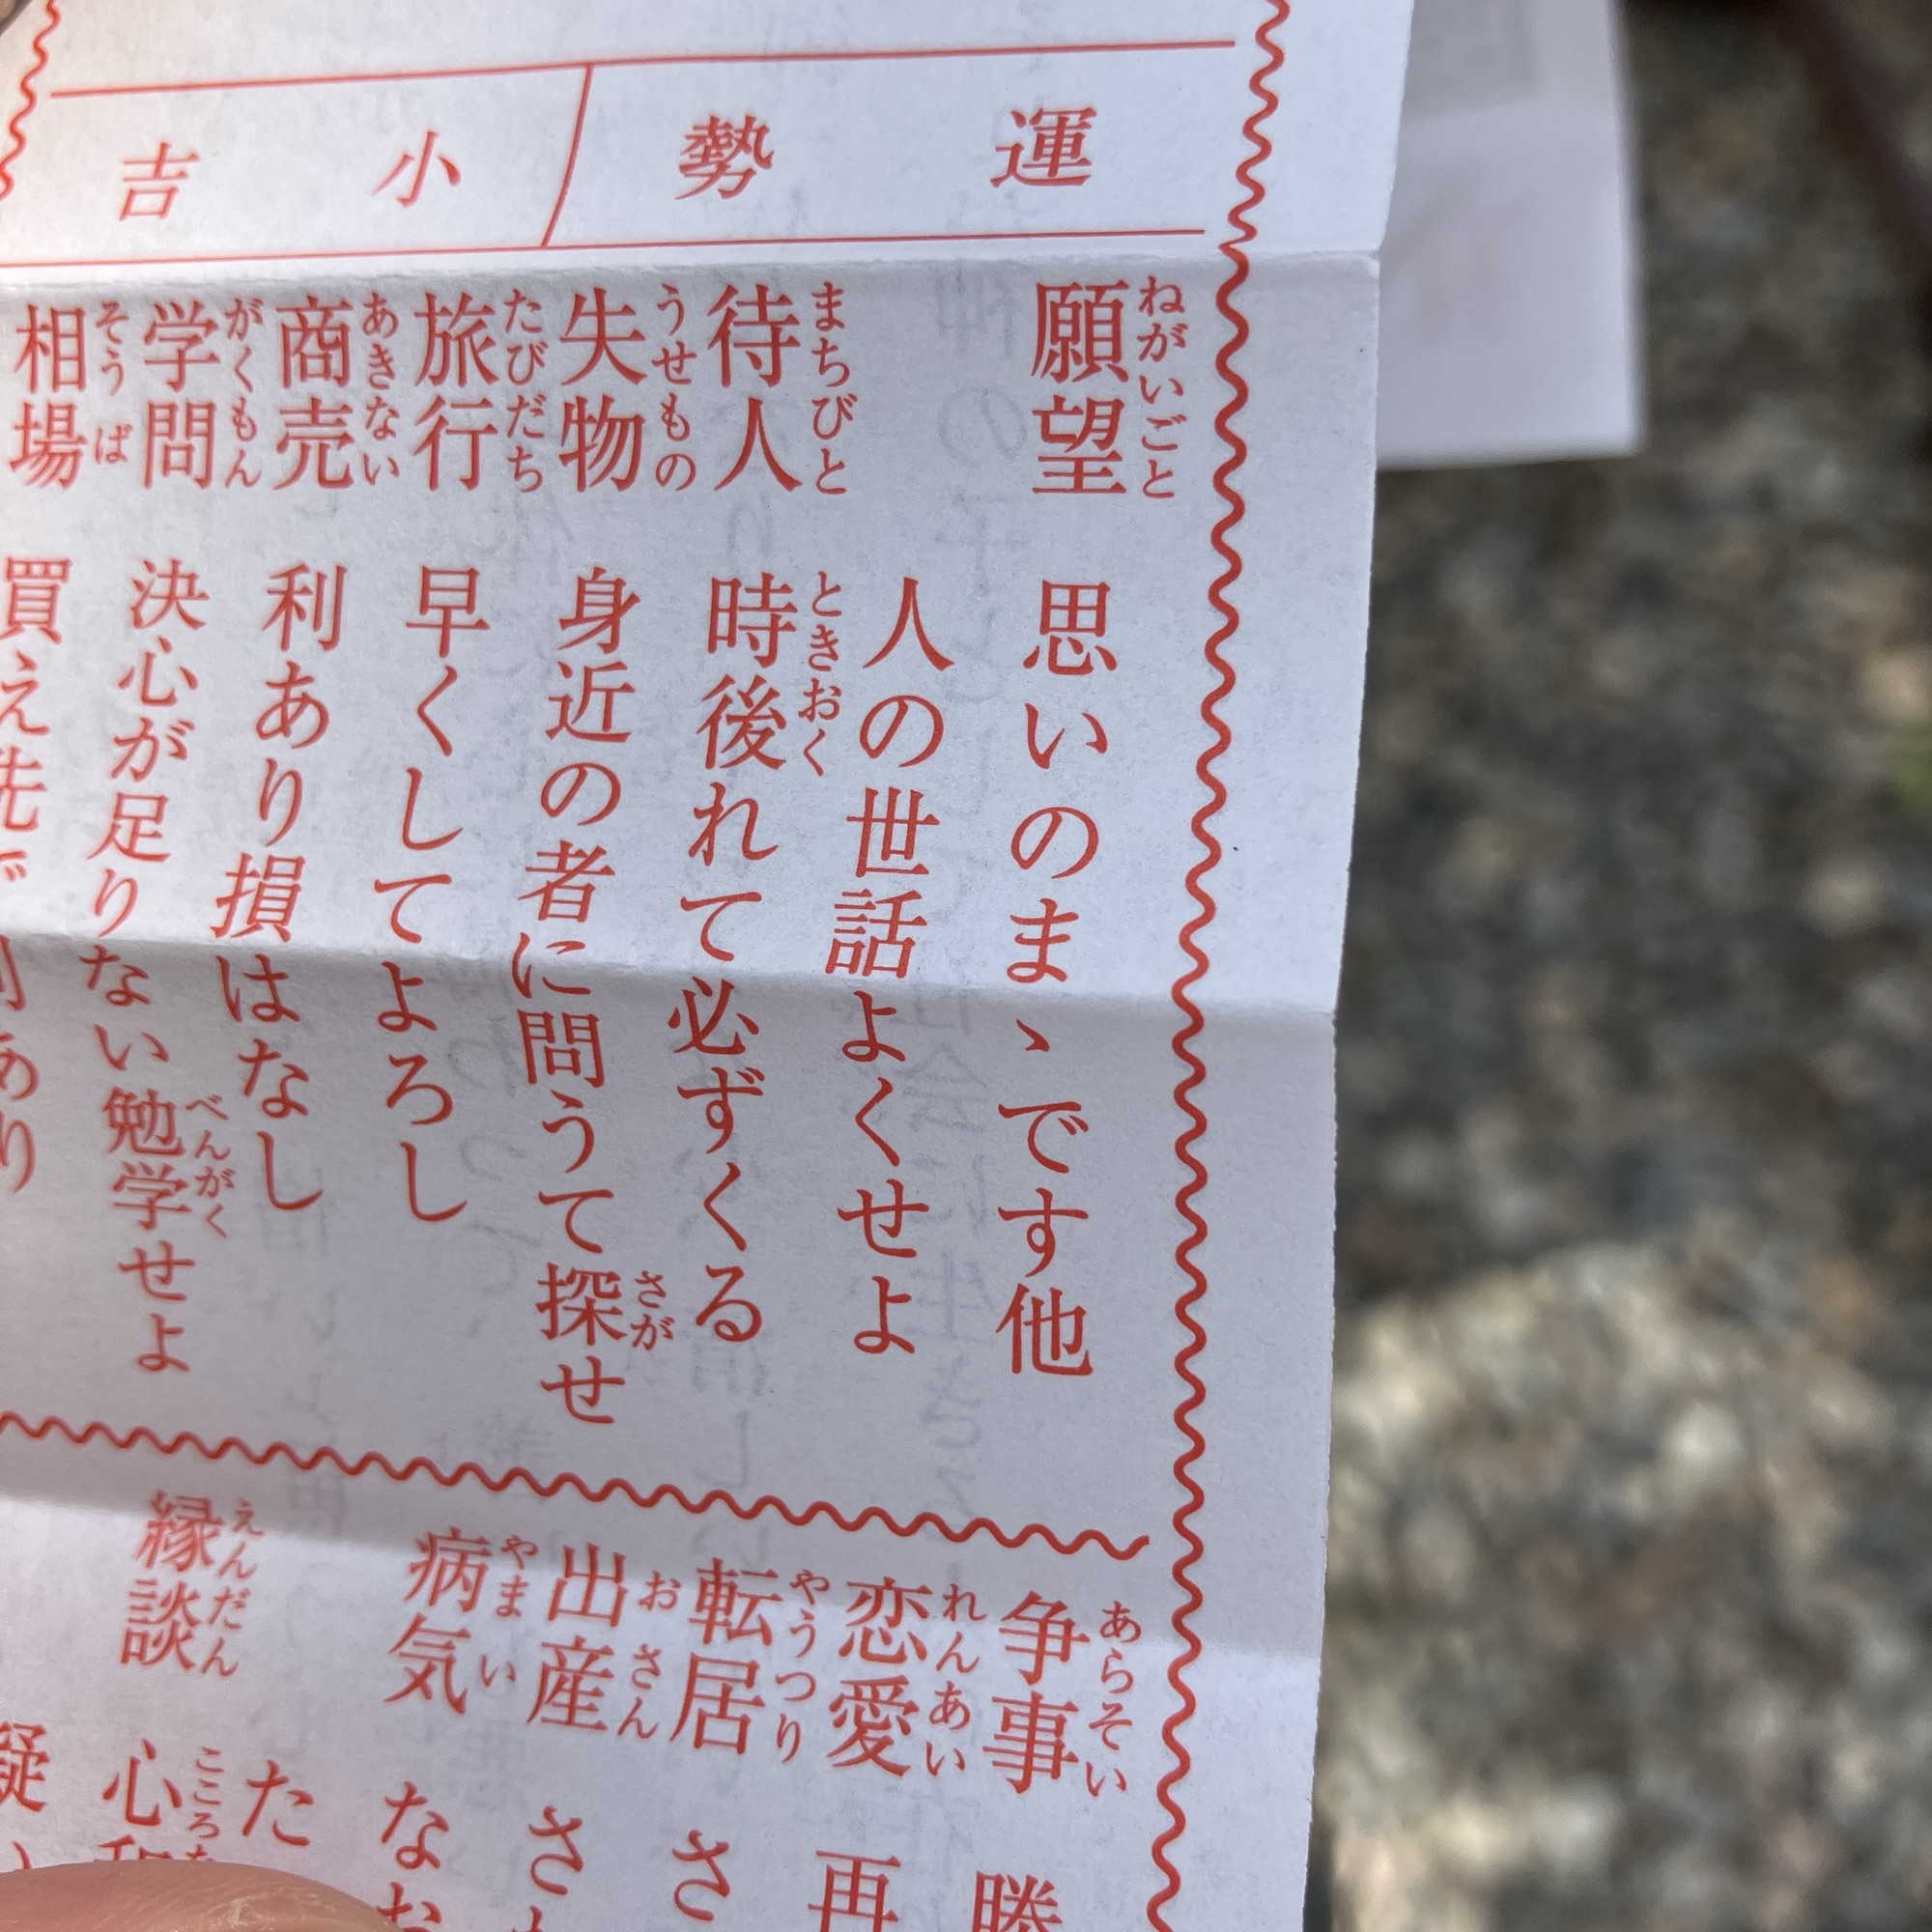 運勢 小吉
願望 ねがいごと 思いのまゝです他
人の世話よくせよ
待人 まちびと 時後れて必ずくる ときおく
失物 うせもの 身近の者に問うて探せ さが
旅行 たびだち 早くしてよろし
商売 あきない 利あり損はなし
学問 がくもん 決心が足りない勉学せよ べんがく
相場 そうば 買え先で利あり
争事 あらそい 勝
恋愛 れんあい 再
転居 やうつり さ
出産 おさん さ
病気 やまい なお
た
縁談 えんだん 心 こころ
疑